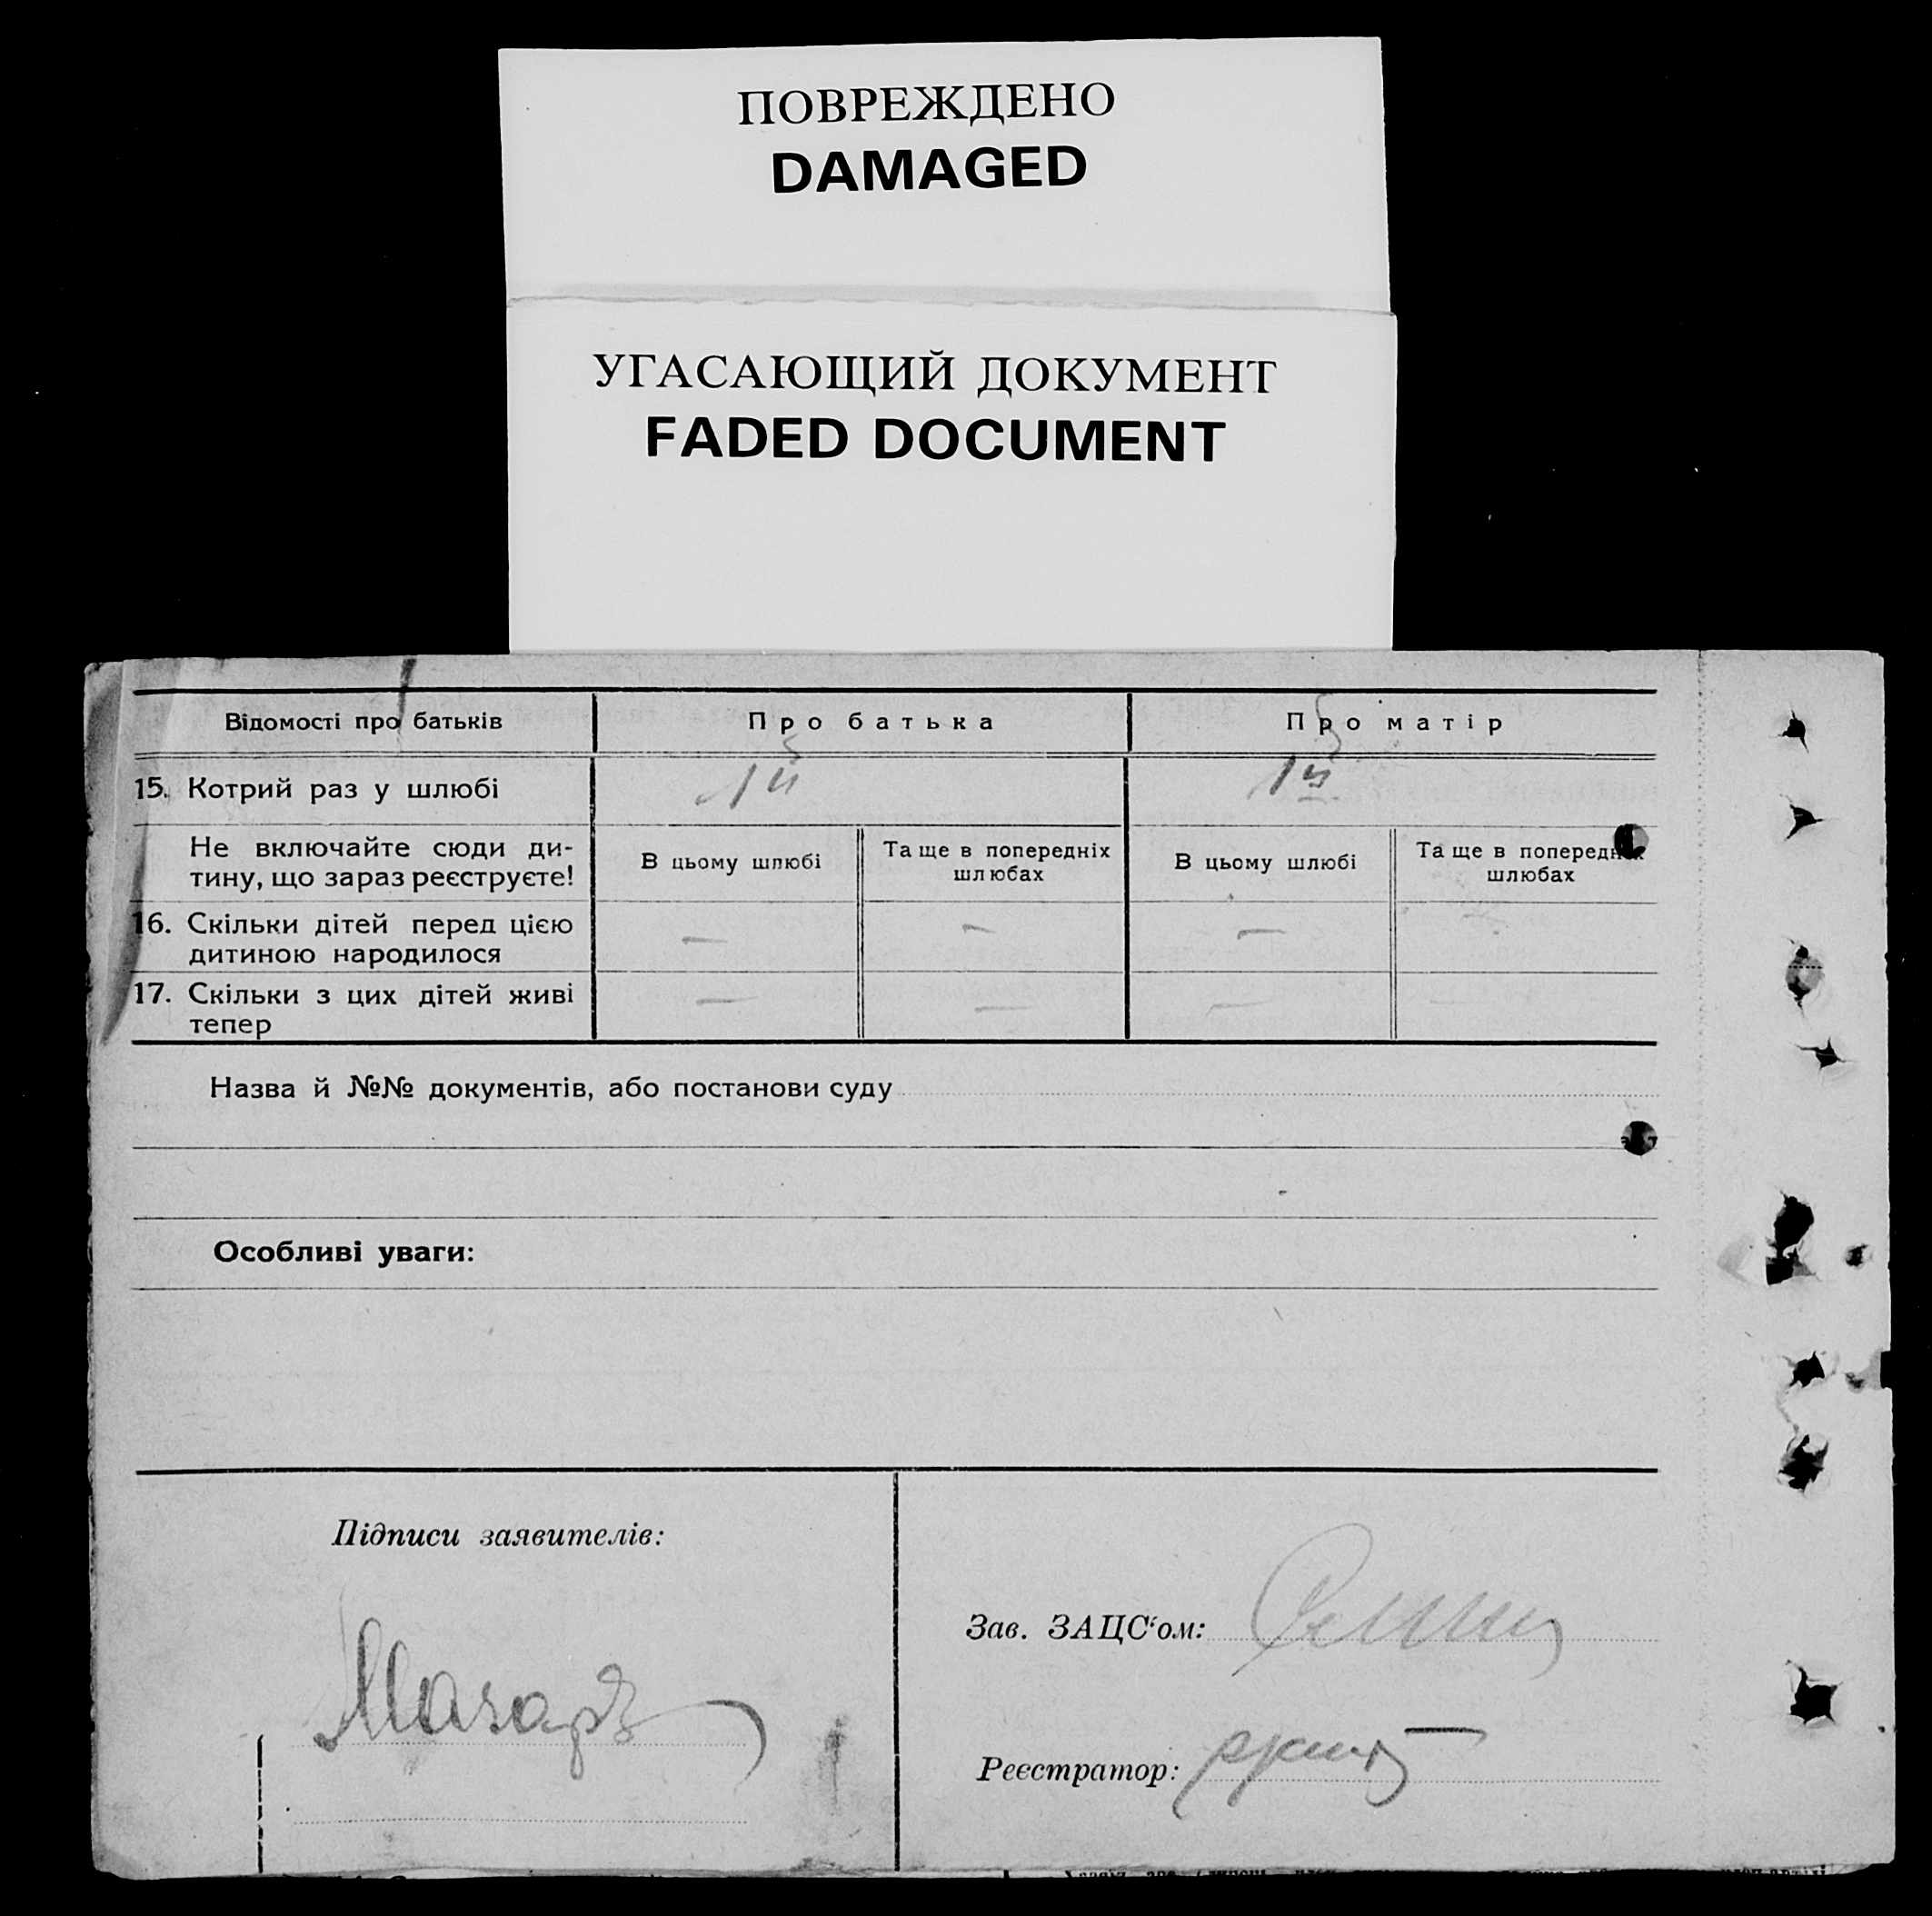 ПОВРЕЖДЕНО
DAMAGED
УГАСАЮЩИЙ ДОКУМЕНТ
FADED DOCUMENT
Відомості про батьків
Про батька
Про матір
15. Котрий раз у шлюбі
1й
1й
Не включайте сюди ди-
тину, що зараз реєструєте!
В цьому шлюбі
Та ще в попередніх
шлюбах
В цьому шлюбі
Та ще в попередніх
шлюбах
16. Скільки дітей перед цією
дитиною народилося
—
—
—
17. Скільки з цих дітей живі
тепер
—
—
—
Назва й №№ документів, або постанови суду
Особливі уваги:
Підписи заявителів:
Зав. ЗАЦС‘ом:
Реєстратор: